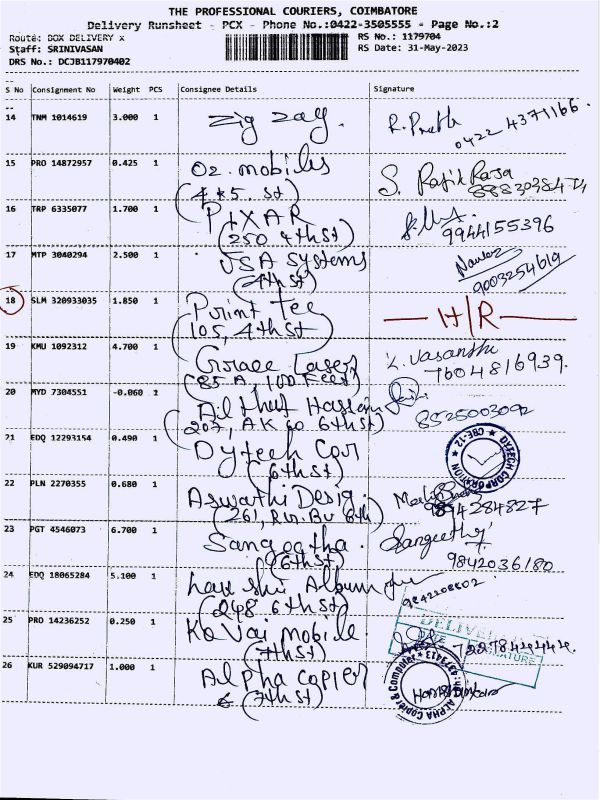 THE PROFESSIONAL COURIERS, COIMBATORE
Delivery Runsheet - PCX - Phone No.:0422-3505555 - Page No.:2
Route: DOX DELIVERY x
RS No.: 1179704
Staff: SRINIVASAN
RS Date: 31-May-2023
DRS No.: DCJB117970402
S No Consignment No Weight PCS Consignee Details Signature
14 TNM 1014619 3.000 1 Zig zag. R. 0422 4371166.
15 PRO 14872957 0.425 1 O2. mobiles
(4th5. st) S. Rafik Raja
16 TRP 6335077 1.700 1 PIXAR
(250 4th St) 9944155396
17 MTP 3040294 2.500 1 JSA Systems
(4th St) 9003254619
18 SLM 320933035 1.850 1 Print Tee H/R
(105, 4th St)
19 KMU 1092312 4.700 1 Grace Laser
(85 A, 100 Feet) L. Vasantha
7604816939.
20 MYD 7304551 -0.060 1 Althuf Hassein
(207, AK 6th St) 8525003092
21 EDQ 12293154 0.490 1 Dytech Cor
(6th St) DYTECH CORPORATION CBE-12
22 PLN 2270355 0.680 1 Aswathi Desig.
(261, 6th)
23 PGT 4546073 6.700 1 Sangeetha. Sangeetha
(6th St) 9842036180
24 EDQ 18065284 5.100 1 Album
(248 6th St)
25 PRO 14236252 0.250 1 Kovai mobile
(7th St) SIGNATURE
26 KUR 529094717 1.000 1 Alpha copier
(7th St) ALPHA Copier & Computer